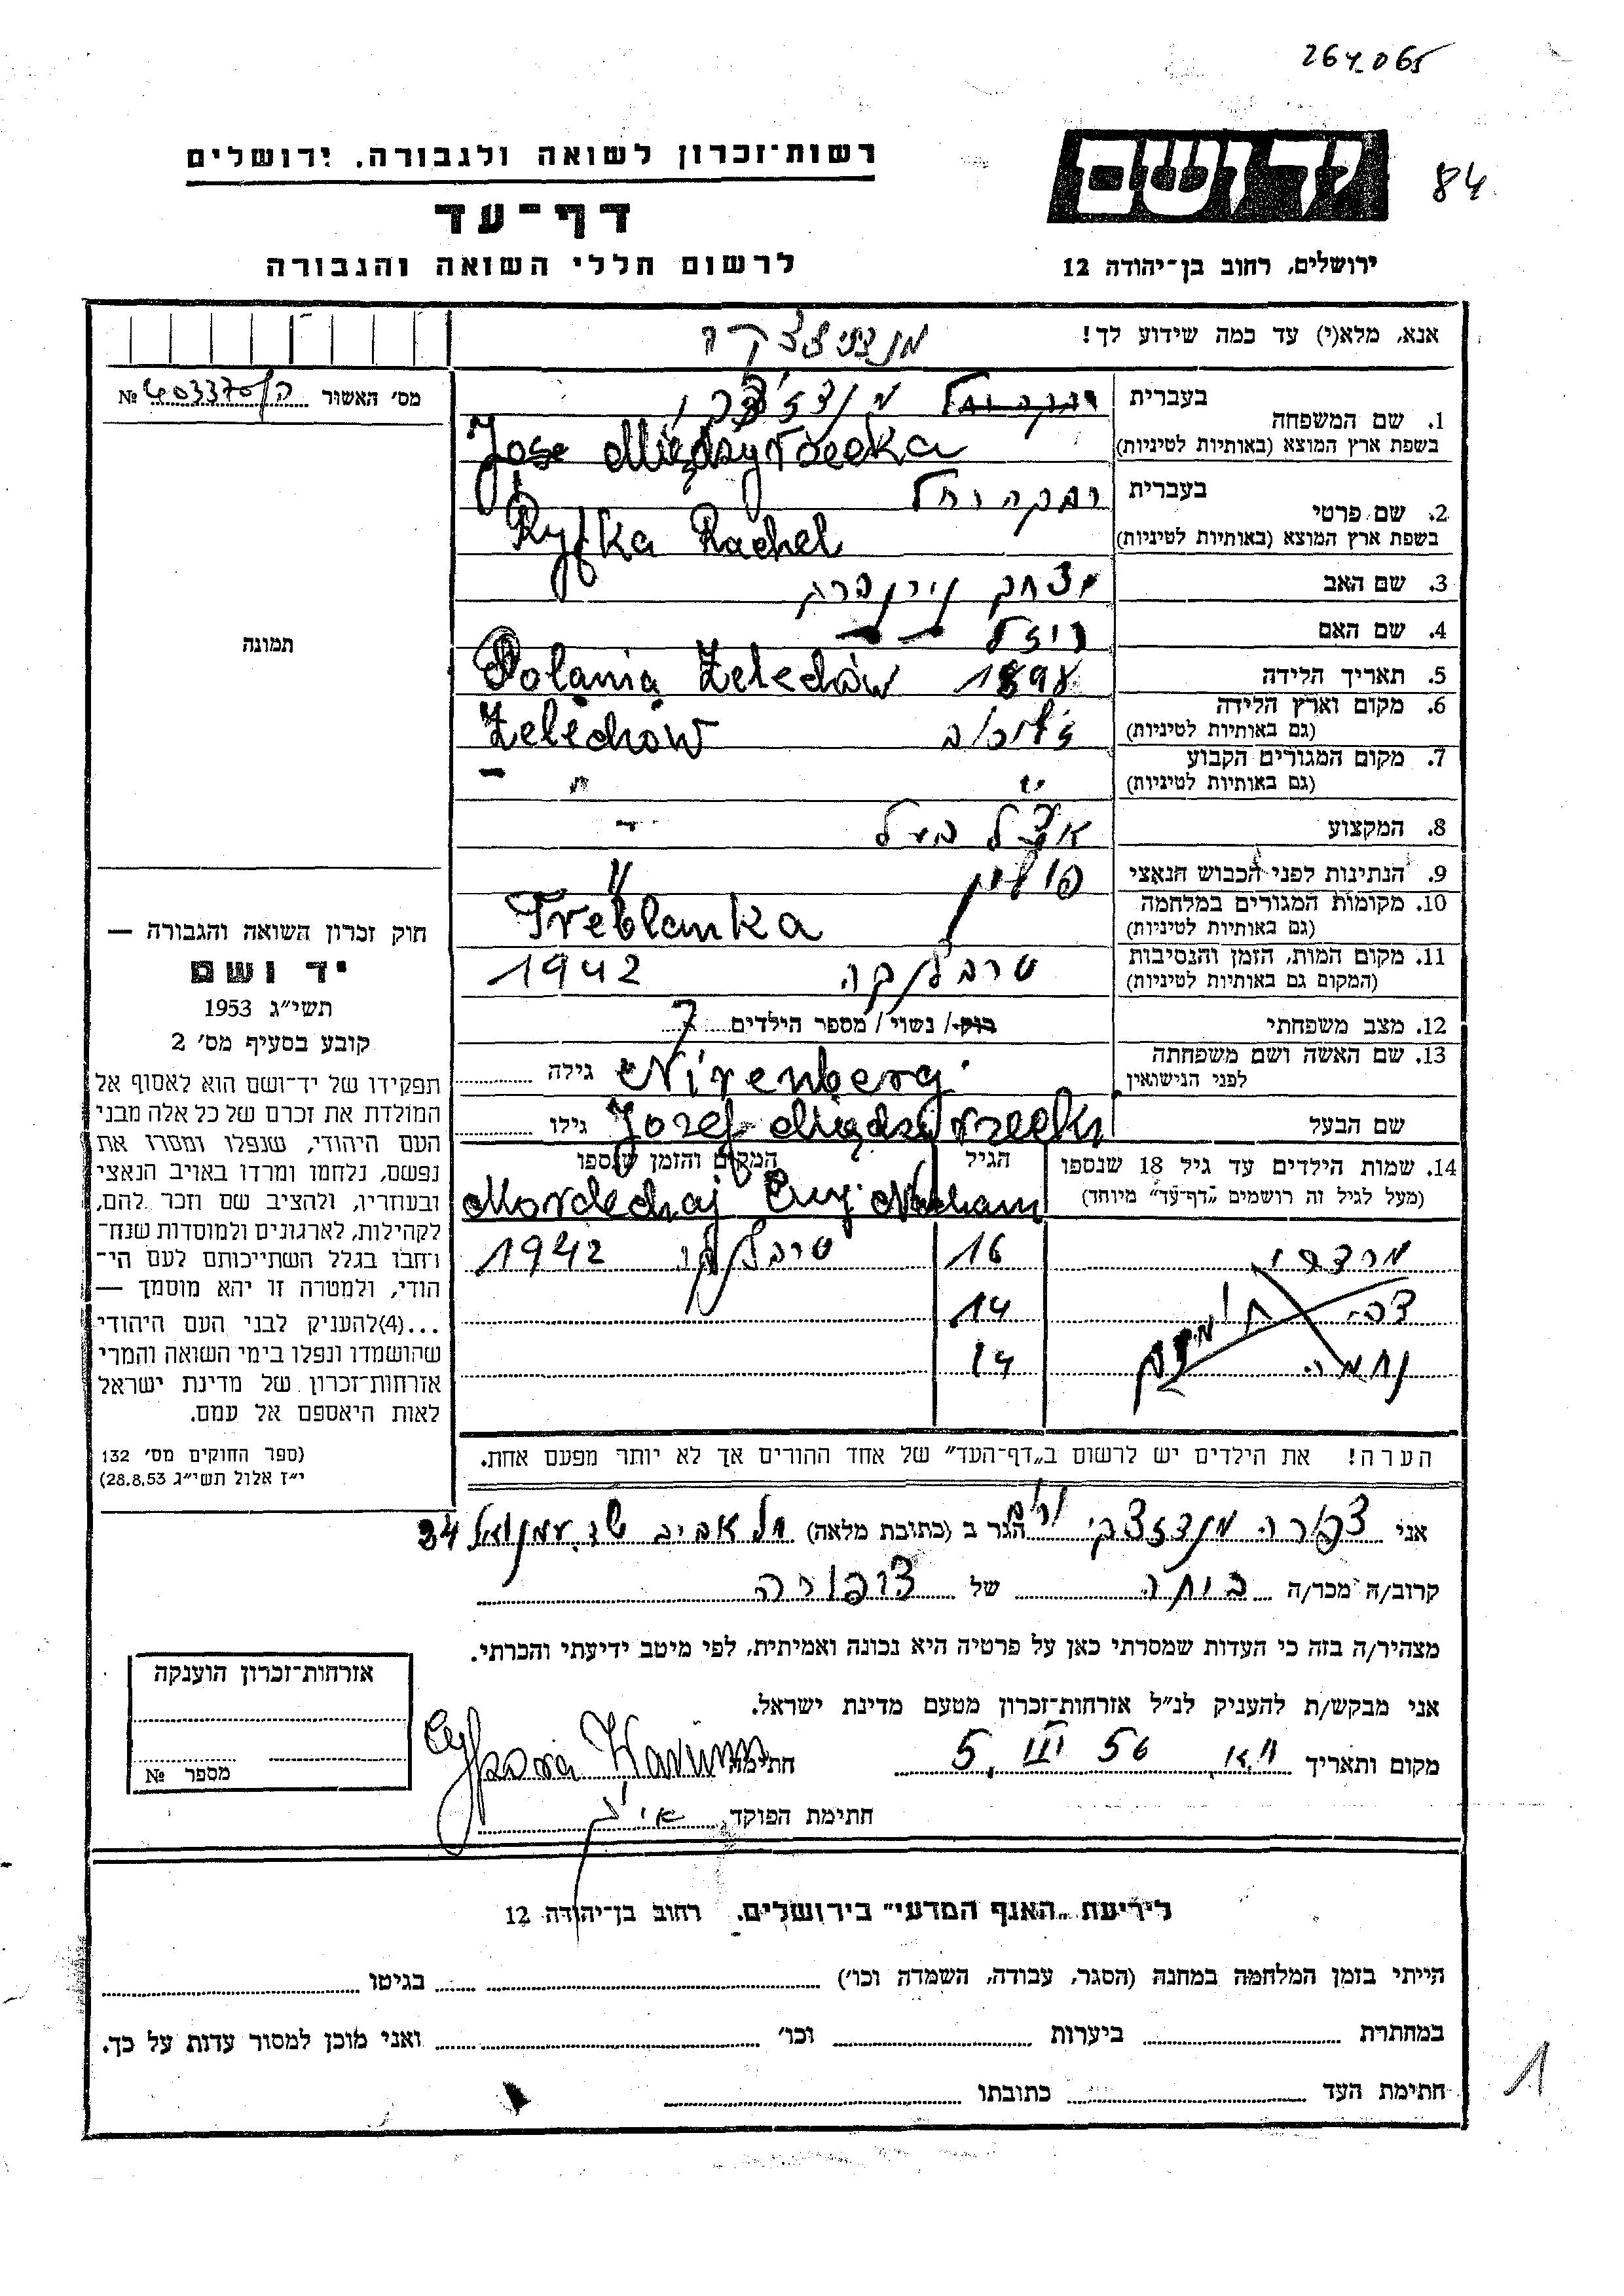 264065
רשות־זכרון לשואה ולגבורה. ירושלים
יד ושם
84
דף־עד
לרשום חללי השואה והגבורה
ירושלים, רחוב בן־יהודה 12
אנא, מלא(י) עד כמה שידוע לך!
מס׳ האשור № 403370/ה
1. שם המשפחה
בעברית
בשפת ארץ המוצא (באותיות לטיניות) Międzyrzecka
2. שם פרטי
בעברית רבקה רחל
בשפת ארץ המוצא (באותיות לטיניות) Ryfka Rachel
3. שם האב יצחק נירנברג
4. שם האם רויזל
5. תאריך הלידה 1898 Polania Żelechów
6. מקום וארץ הלידה
(גם באותיות לטיניות) ז׳לוכוב Żelechów
7. מקום המגורים הקבוע
(גם באותיות לטיניות) " " -
8. המקצוע אצל בעל
9. הנתינות לפני הכבוש הנאצי פולין "
10. מקומות המגורים במלחמה
(גם באותיות לטיניות) Treblanka
11. מקום המות, הזמן והנסיבות
(המקום גם באותיות לטיניות) טרבלנקה 1942
12. מצב משפחתי רוק / נשוי / מספר הילדים 7
13. שם האשה ושם משפחתה
לפני הנישואין Nirenberg גילה
שם הבעל Jozef Międzyrzecki גילו
14. שמות הילדים עד גיל 18 שנספו הגיל המקום והזמן שנספו
(מעל לגיל זה רושמים „דף־עד״ מיוחד) Mordechaj Cwy Nacham
מרדכי 16 טרבלנקה 1942
צבי 14
נחמה 14
הערה! את הילדים יש לרשום ב„דף־העד״ של אחד ההורים אך לא יותר מפעם אחת.
תמונה
חוק זכרון השואה והגבורה —
יד ושם
תשי״ג 1953
קובע בסעיף מס׳ 2
תפקידו של יד־ושם הוא לאסוף אל
המולדת את זכרם של כל אלה מבני
העם היהודי, שנפלו ומסרו את
נפשם, נלחמו ומרדו באויב הנאצי
ובעוזריו, ולהציב שם וזכר להם,
לקהילות, לארגונים ולמוסדות שנח־
רבו בגלל השתייכותם לעם הי־
הודי, ולמטרה זו יהא מוסמך —
...(4)להעניק לבני העם היהודי
שהושמדו ונפלו בימי השואה והמרי
אזרחות־זכרון של מדינת ישראל
לאות היאספם אל עמם.
(ספר החוקים מס׳ 132
י״ז אלול תשי״ג 28.8.53)
אני צפורה הגר ב (כתובת מלאה) תל אביב שד. עמנואל 34
קרוב/ה מכר/ה של צופורה
מצהיר/ה בזה כי העדות שמסרתי כאן על פרטיה היא נכונה ואמיתית, לפי מיטב ידיעתי והכרתי.
אני מבקש/ת להעניק לנ״ל אזרחות־זכרון מטעם מדינת ישראל.
מקום ותאריך 5. III 56 חתימה
חתימת הפוקד
אזרחות־זכרון הוענקה
מספר №
לידיעת „האגף המדעי״ בירושלים. רחוב בן־יהודה 12
הייתי בזמן המלחמה במחנה (הסגר, עבודה, השמדה וכו׳) בגיטו
במחתרת ביערות וכו׳ ואני מוכן למסור עדות על כך.
חתימת העד כתובתו
1